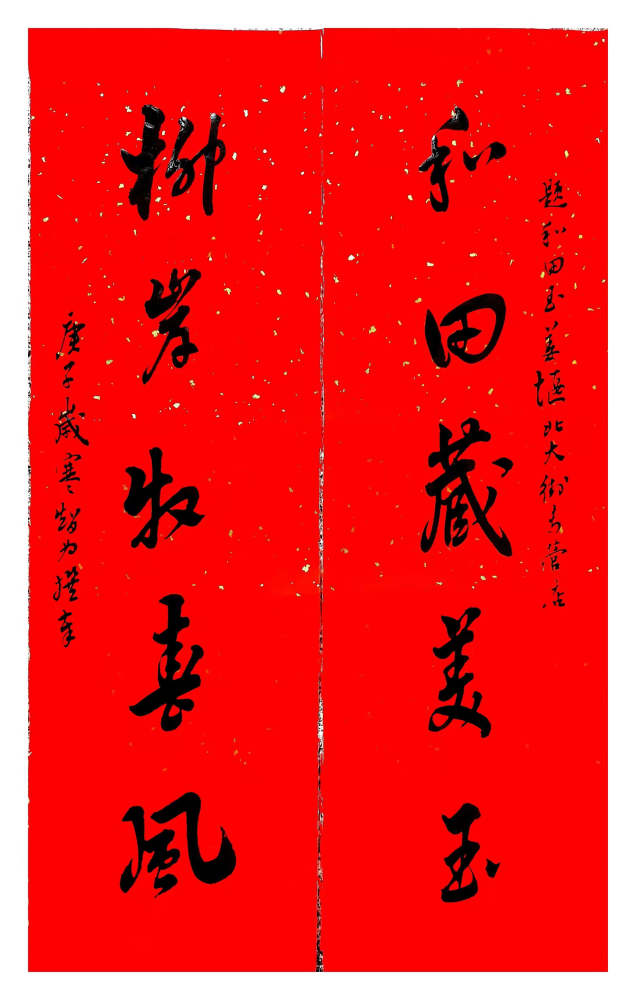 題和田玉姜堰北大街专营店
和田藏美玉
柳岸牧春風
庚子歲寒智为撰奉